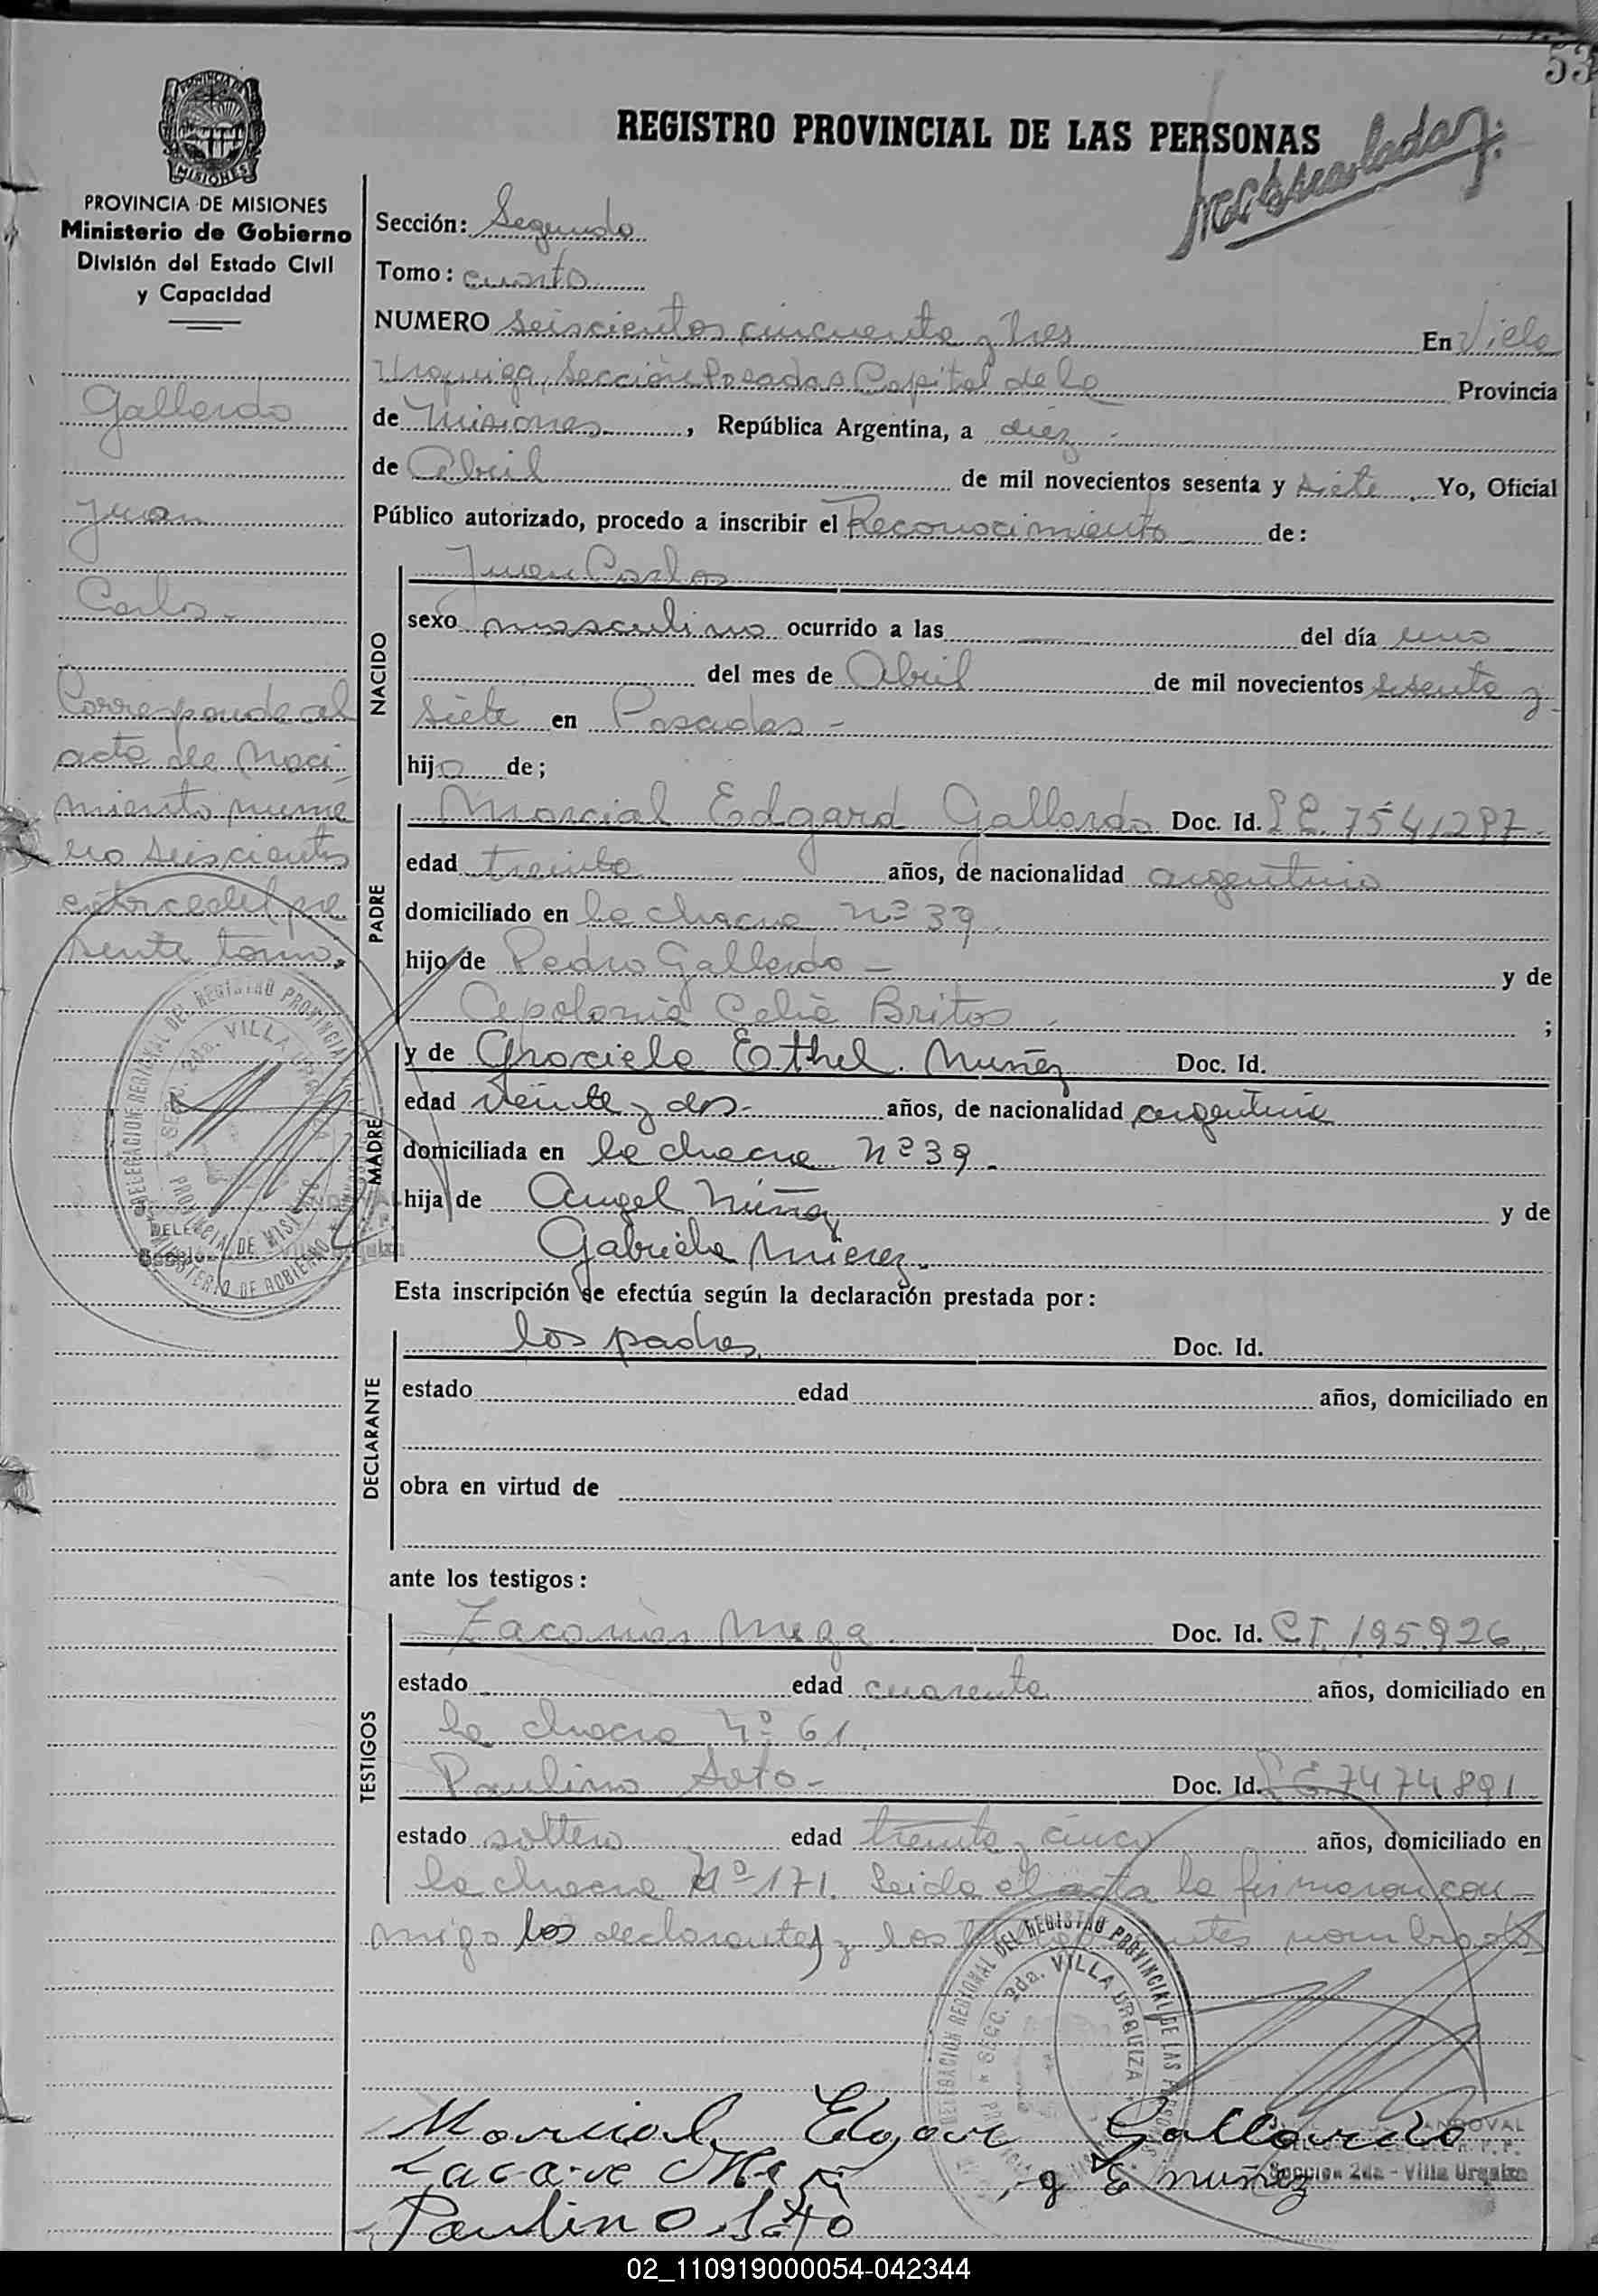 53
REGISTRO PROVINCIAL DE LAS PERSONAS
PROVINCIA DE MISIONES
Ministerio de Gobierno
División del Estado Civil
y Capacidad
Gallardo
Juan
Carlos -
Corresponde al
acta de Naci
miento nume
ro seiscientos
catorce del pre
sente tomo.
Sección: Segunda
Tomo: cuarto
NUMERO seiscientos cincuenta y tres En Villa
Urquiza, Sección Posadas Capital de la Provincia
de Misiones, República Argentina, a diez
de Abril de mil novecientos sesenta y siete. Yo, Oficial
Público autorizado, procedo a inscribir el Reconocimiento de:
NACIDO
Juan Carlos
sexo masculino ocurrido a las del día uno
del mes de Abril de mil novecientos sesenta y
siete en Posadas -
hijo de;
PADRE
Marcial Edgard Gallardo Doc. Id. L.E. 7541297.
edad treinta años, de nacionalidad argentino
domiciliado en la chacra nº 39.
hijo de Pedro Gallardo - y de
Apolonia Celia Britos ;
MADRE
y de Graciela Ethel Nuñez Doc. Id.
edad veinte y dos - años, de nacionalidad argentina
domiciliada en la chacra nº 39.
hija de Angel Núñez y de
Gabriela Mierez.
Esta inscripción se efectúa según la declaración prestada por:
DECLARANTE
los padres Doc. Id.
estado edad años, domiciliado en
obra en virtud de
ante los testigos:
TESTIGOS
Zacarias Meza Doc. Id. C.I. 195.926
estado edad cuarenta años, domiciliado en
la chacra Nº 61.
Paulino Soto - Doc. Id. L.E. 7474891
estado soltero edad treinta y cinco años, domiciliado en
la chacra Nº 171. Leida el acta la firmaron con
migo los declarantes y los nombrados
DELEGACION REGIONAL DEL REGISTRO PROVINCIAL DE LAS PERSONAS
SECC. 2da. VILLA URQUIZA
PROVINCIA DE MISIONES
MINISTERIO DE GOBIERNO
DELEGACION REGIONAL DEL REGISTRO PROVINCIAL DE LAS PERSONAS
SECC. 2da. VILLA URQUIZA
Marcial Edgar Gallardo
SANDOVAL
Seccion 2da - Villa Urquiza
g E Nuñez
Paulino Soto
02_110919000054-042344